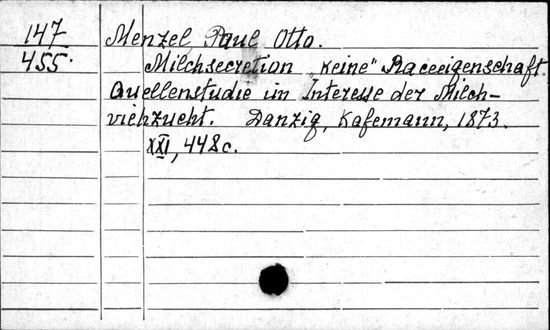 147 Menzel, Paul Otto.
455. Milchsecretion „keine" Raceeigenschaft.
Quellenstudie im Interesse der Milch-
viehzucht. Danzig, Kafemann, 1873.
XXI, 448 c.